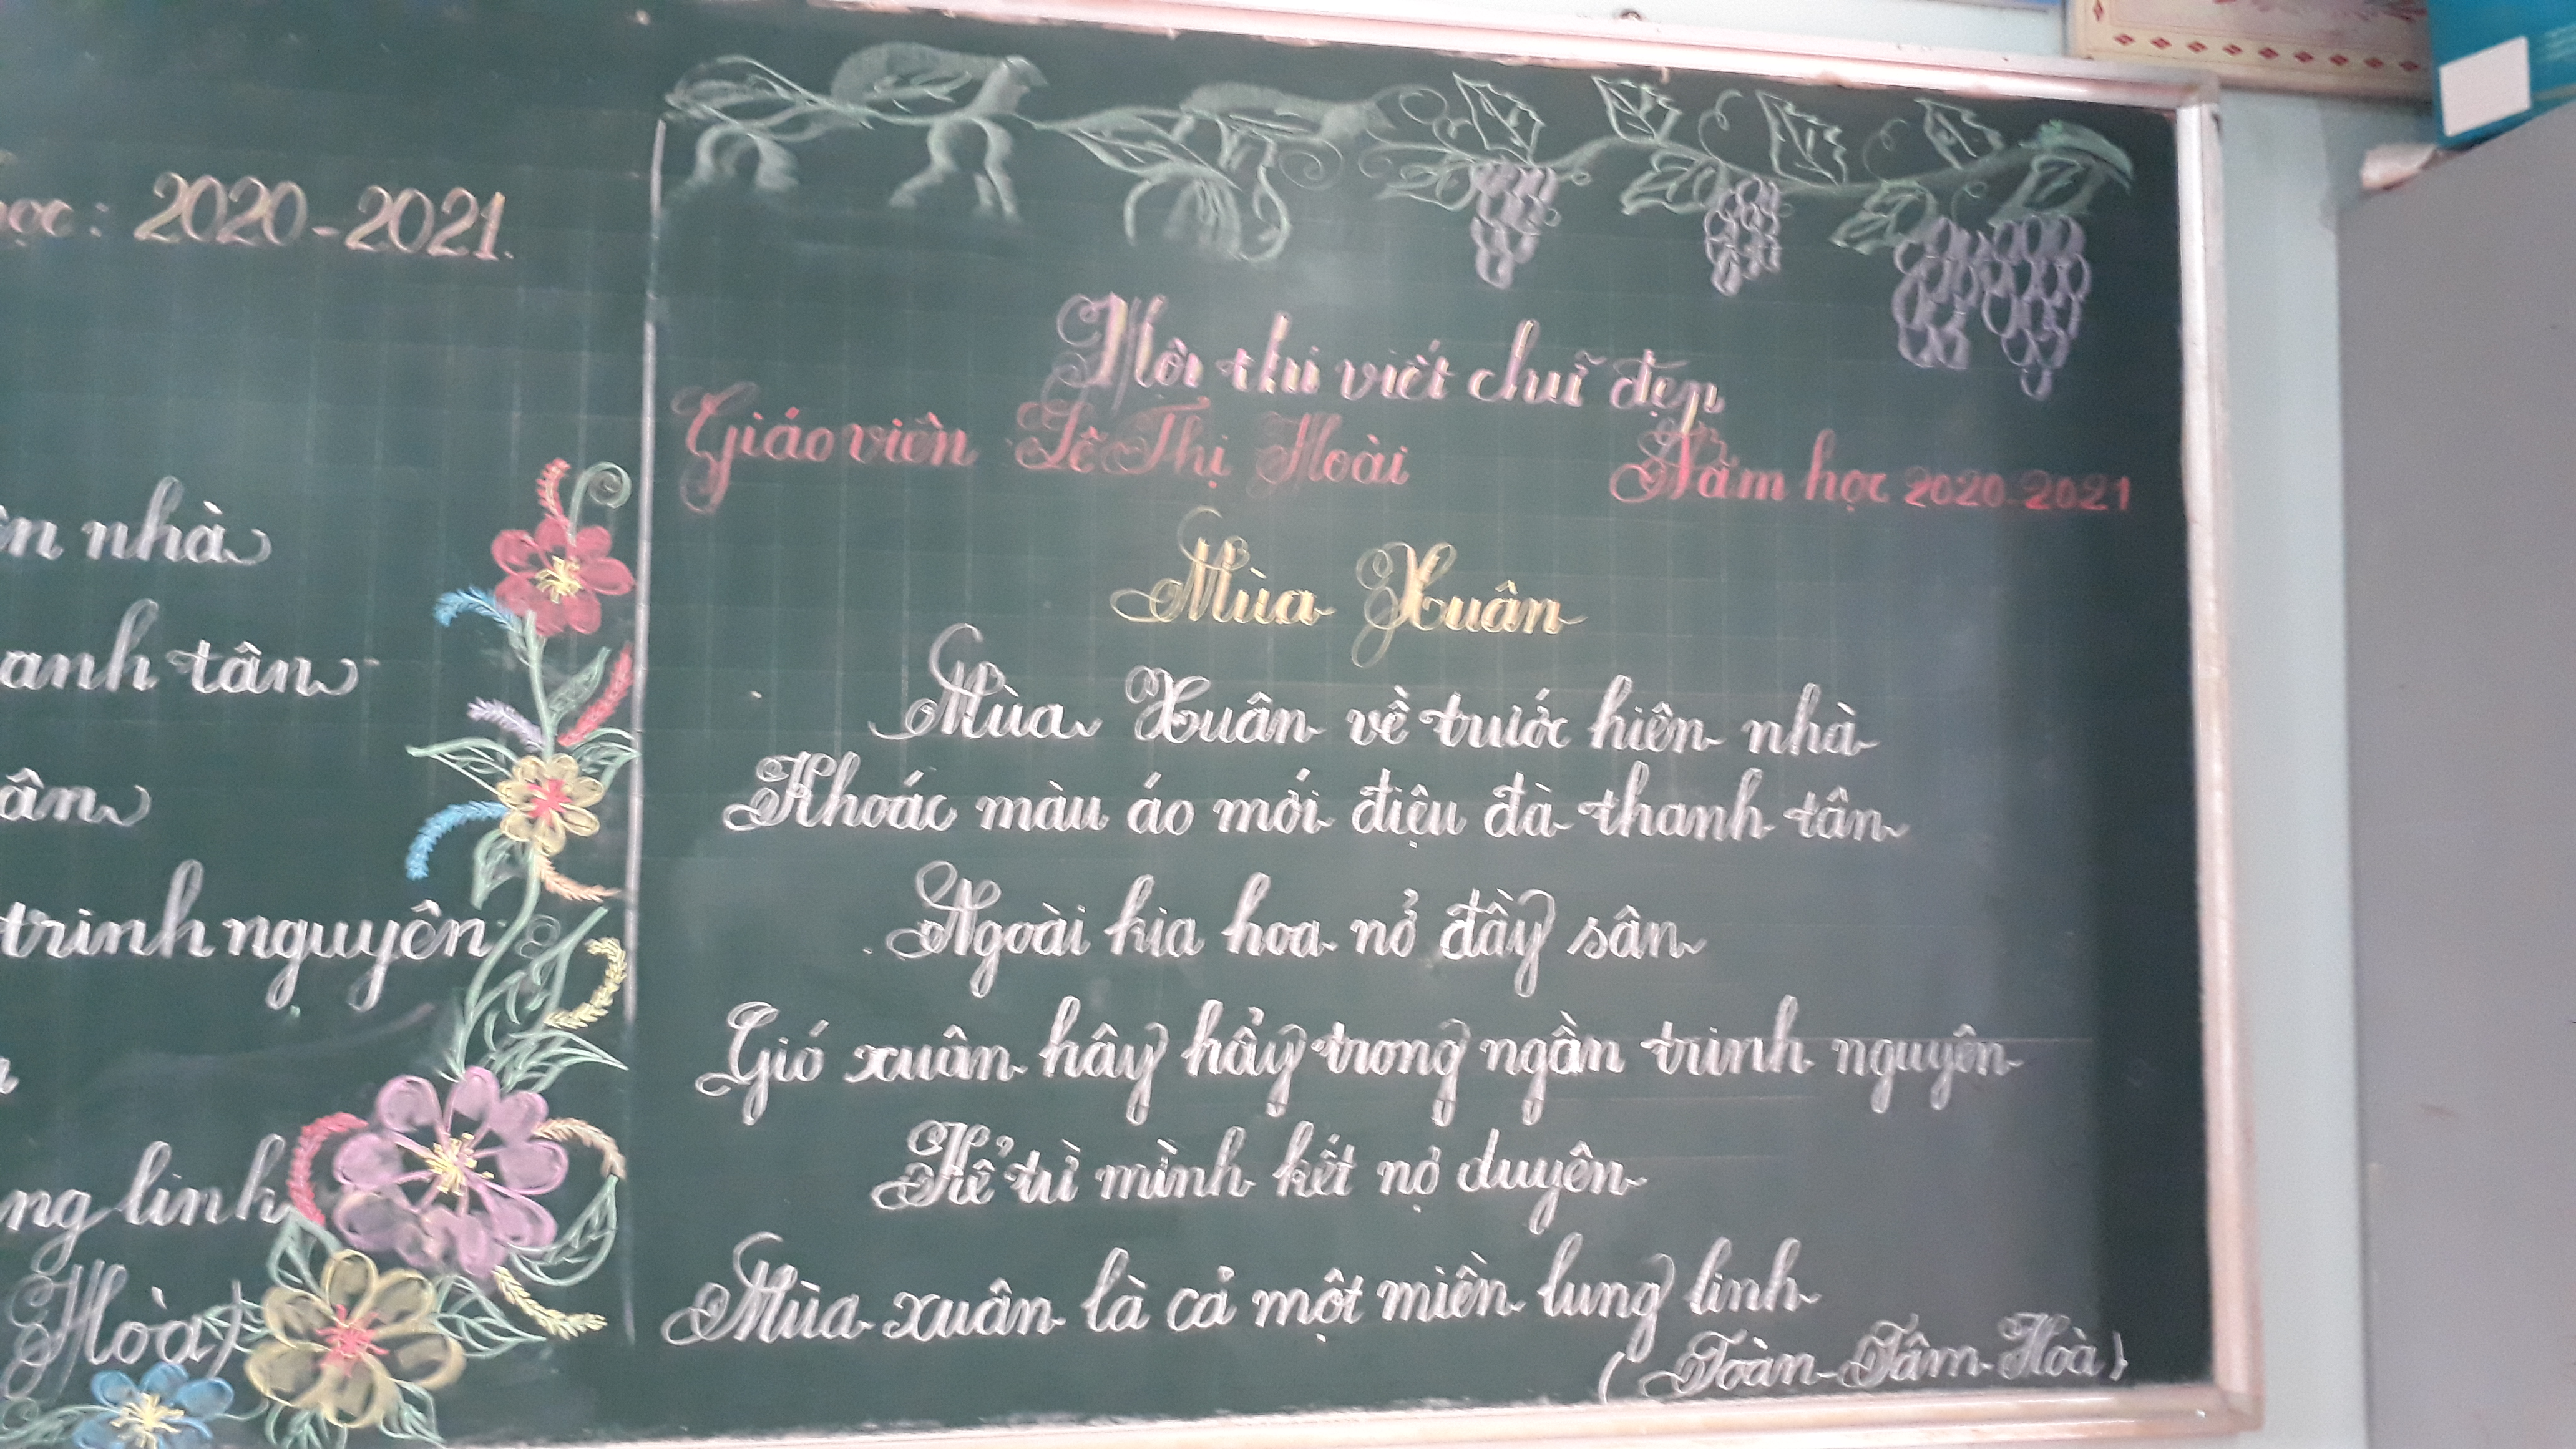 ọc: 2020-2021.
ên nhà
anh tân
ân
trinh nguyên
ng linh
Hoà)
Hội thi viết chữ đẹp
Giáo viên Lê Thị Hoài Năm học 2020-2021
Mùa Xuân
Mùa Xuân về trước hiên nhà
Khoác màu áo mới điệu đà thanh tân
Ngoài kia hoa nở đầy sân
Gió xuân hây hẩy trong ngần trinh nguyên
Kể từ mình kết nợ duyên
Mùa xuân là cả một miền lung linh
(Toàn-Tâm-Hoà)